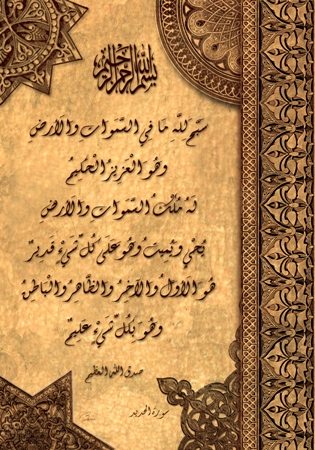 بسم الله الرحمن الرحيم
سَبَّحَ لِلَّهِ مَا فِي السَّمَوَاتِ وَالْأَرْضِ
وَهُوَ الْعَزِيزُ الْحَكِيمُ
لَهُ مُلْكُ السَّمَوَاتِ وَالْأَرْضِ
يُحْيِي وَيُمِيتُ وَهُوَ عَلَى كُلِّ شَيْءٍ قَدِيرٌ
هُوَ الْأَوَّلُ وَالْآخِرُ وَالظَّاهِرُ وَالْبَاطِنُ
وَهُوَ بِكُلِّ شَيْءٍ عَلِيمٌ
صدق الله العظيم
سورة الحديد